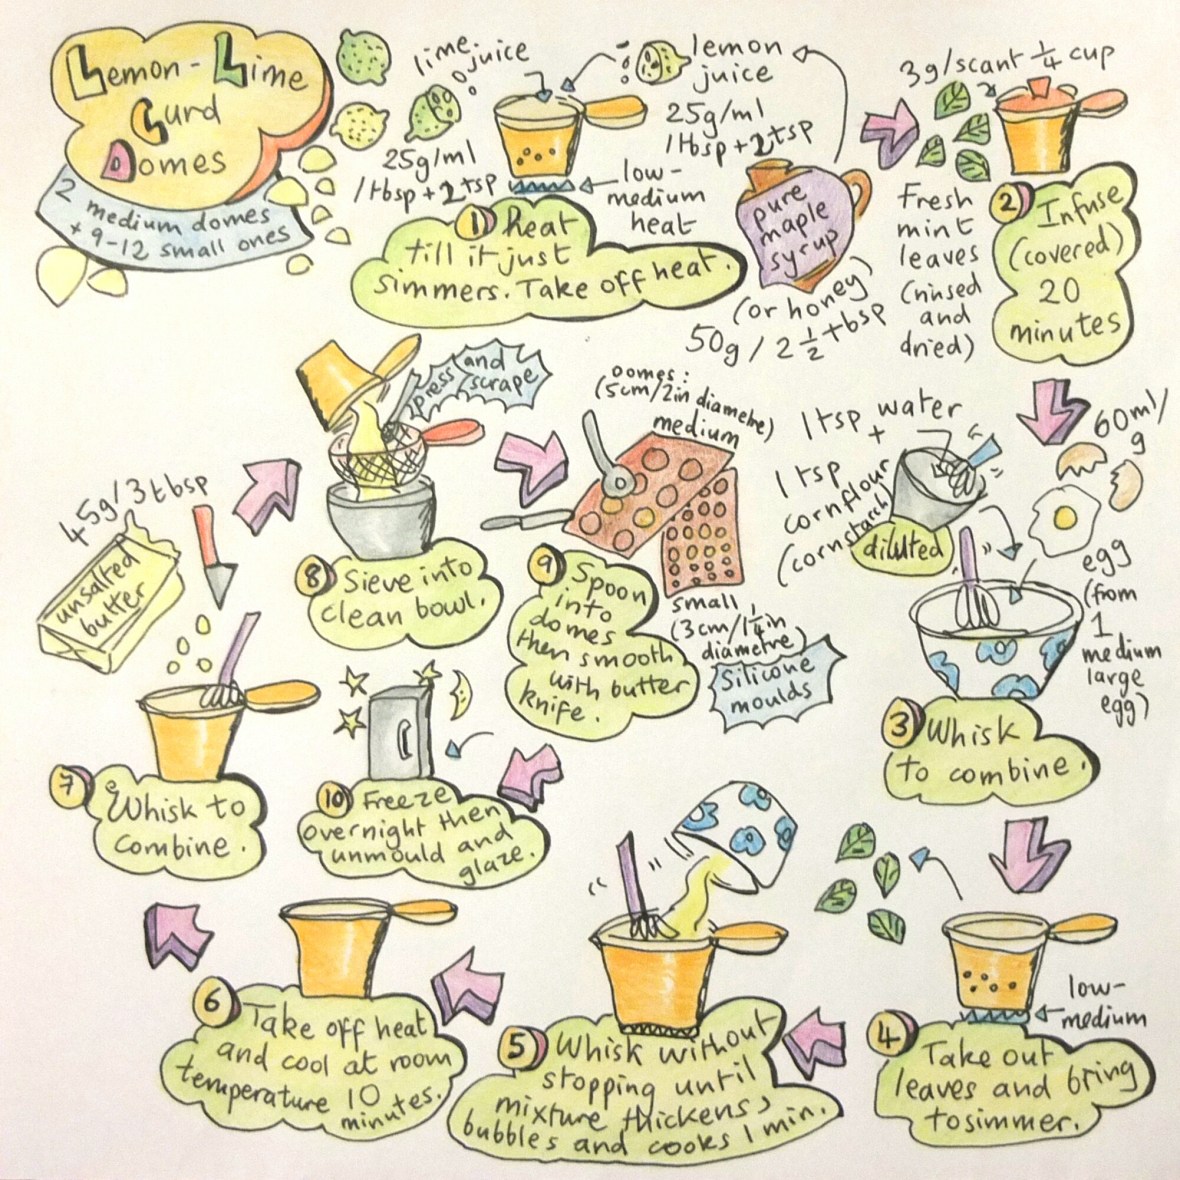 Lemon-Lime
Curd
Domes
2 medium domes
+ 9-12 small ones
lime juice
25g/ml
1tbsp+2tsp
lemon
juice
25g/ml
1tbsp+2tsp
low-
medium
heat
pure
maple
syrup
(or honey)
50g/2½tbsp
1 Heat
till it just
simmers. Take off heat.
3g/scant ¼ cup
Fresh
mint
leaves
(rinsed
and
dried)
2 Infuse
(covered)
20
minutes
1tsp water
+
1tsp
cornflour
(cornstarch)
diluted
60ml/
g
egg
(from
1
medium
large
egg)
3 Whisk
to combine.
low-
medium
4 Take out
leaves and bring
to simmer.
5 Whisk without
stopping until
mixture thickens,
bubbles and cooks 1 min.
6 Take off heat
and cool at room
temperature 10
minutes.
45g/3tbsp
unsalted
butter
7 Whisk to
combine.
press and
scrape
8 Sieve into
clean bowl.
Domes:
(5cm/2in diametre)
medium
small
(3cm/1¼in
diametre)
Silicone
moulds
9 Spoon
into
domes
then smooth
with butter
knife.
10 Freeze
overnight then
unmould and
glaze.